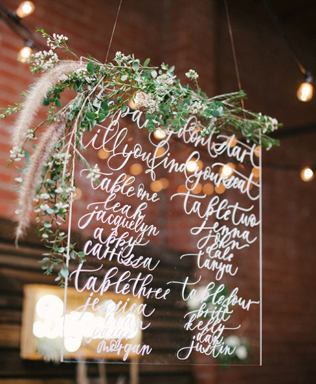 don't start
till you find your seat
table one
leah
jacquelyn
abby
carissa
table two
jenna
john
cale
tanya
table three
jessica
morgan
table four
britt
kelly
dad
justin